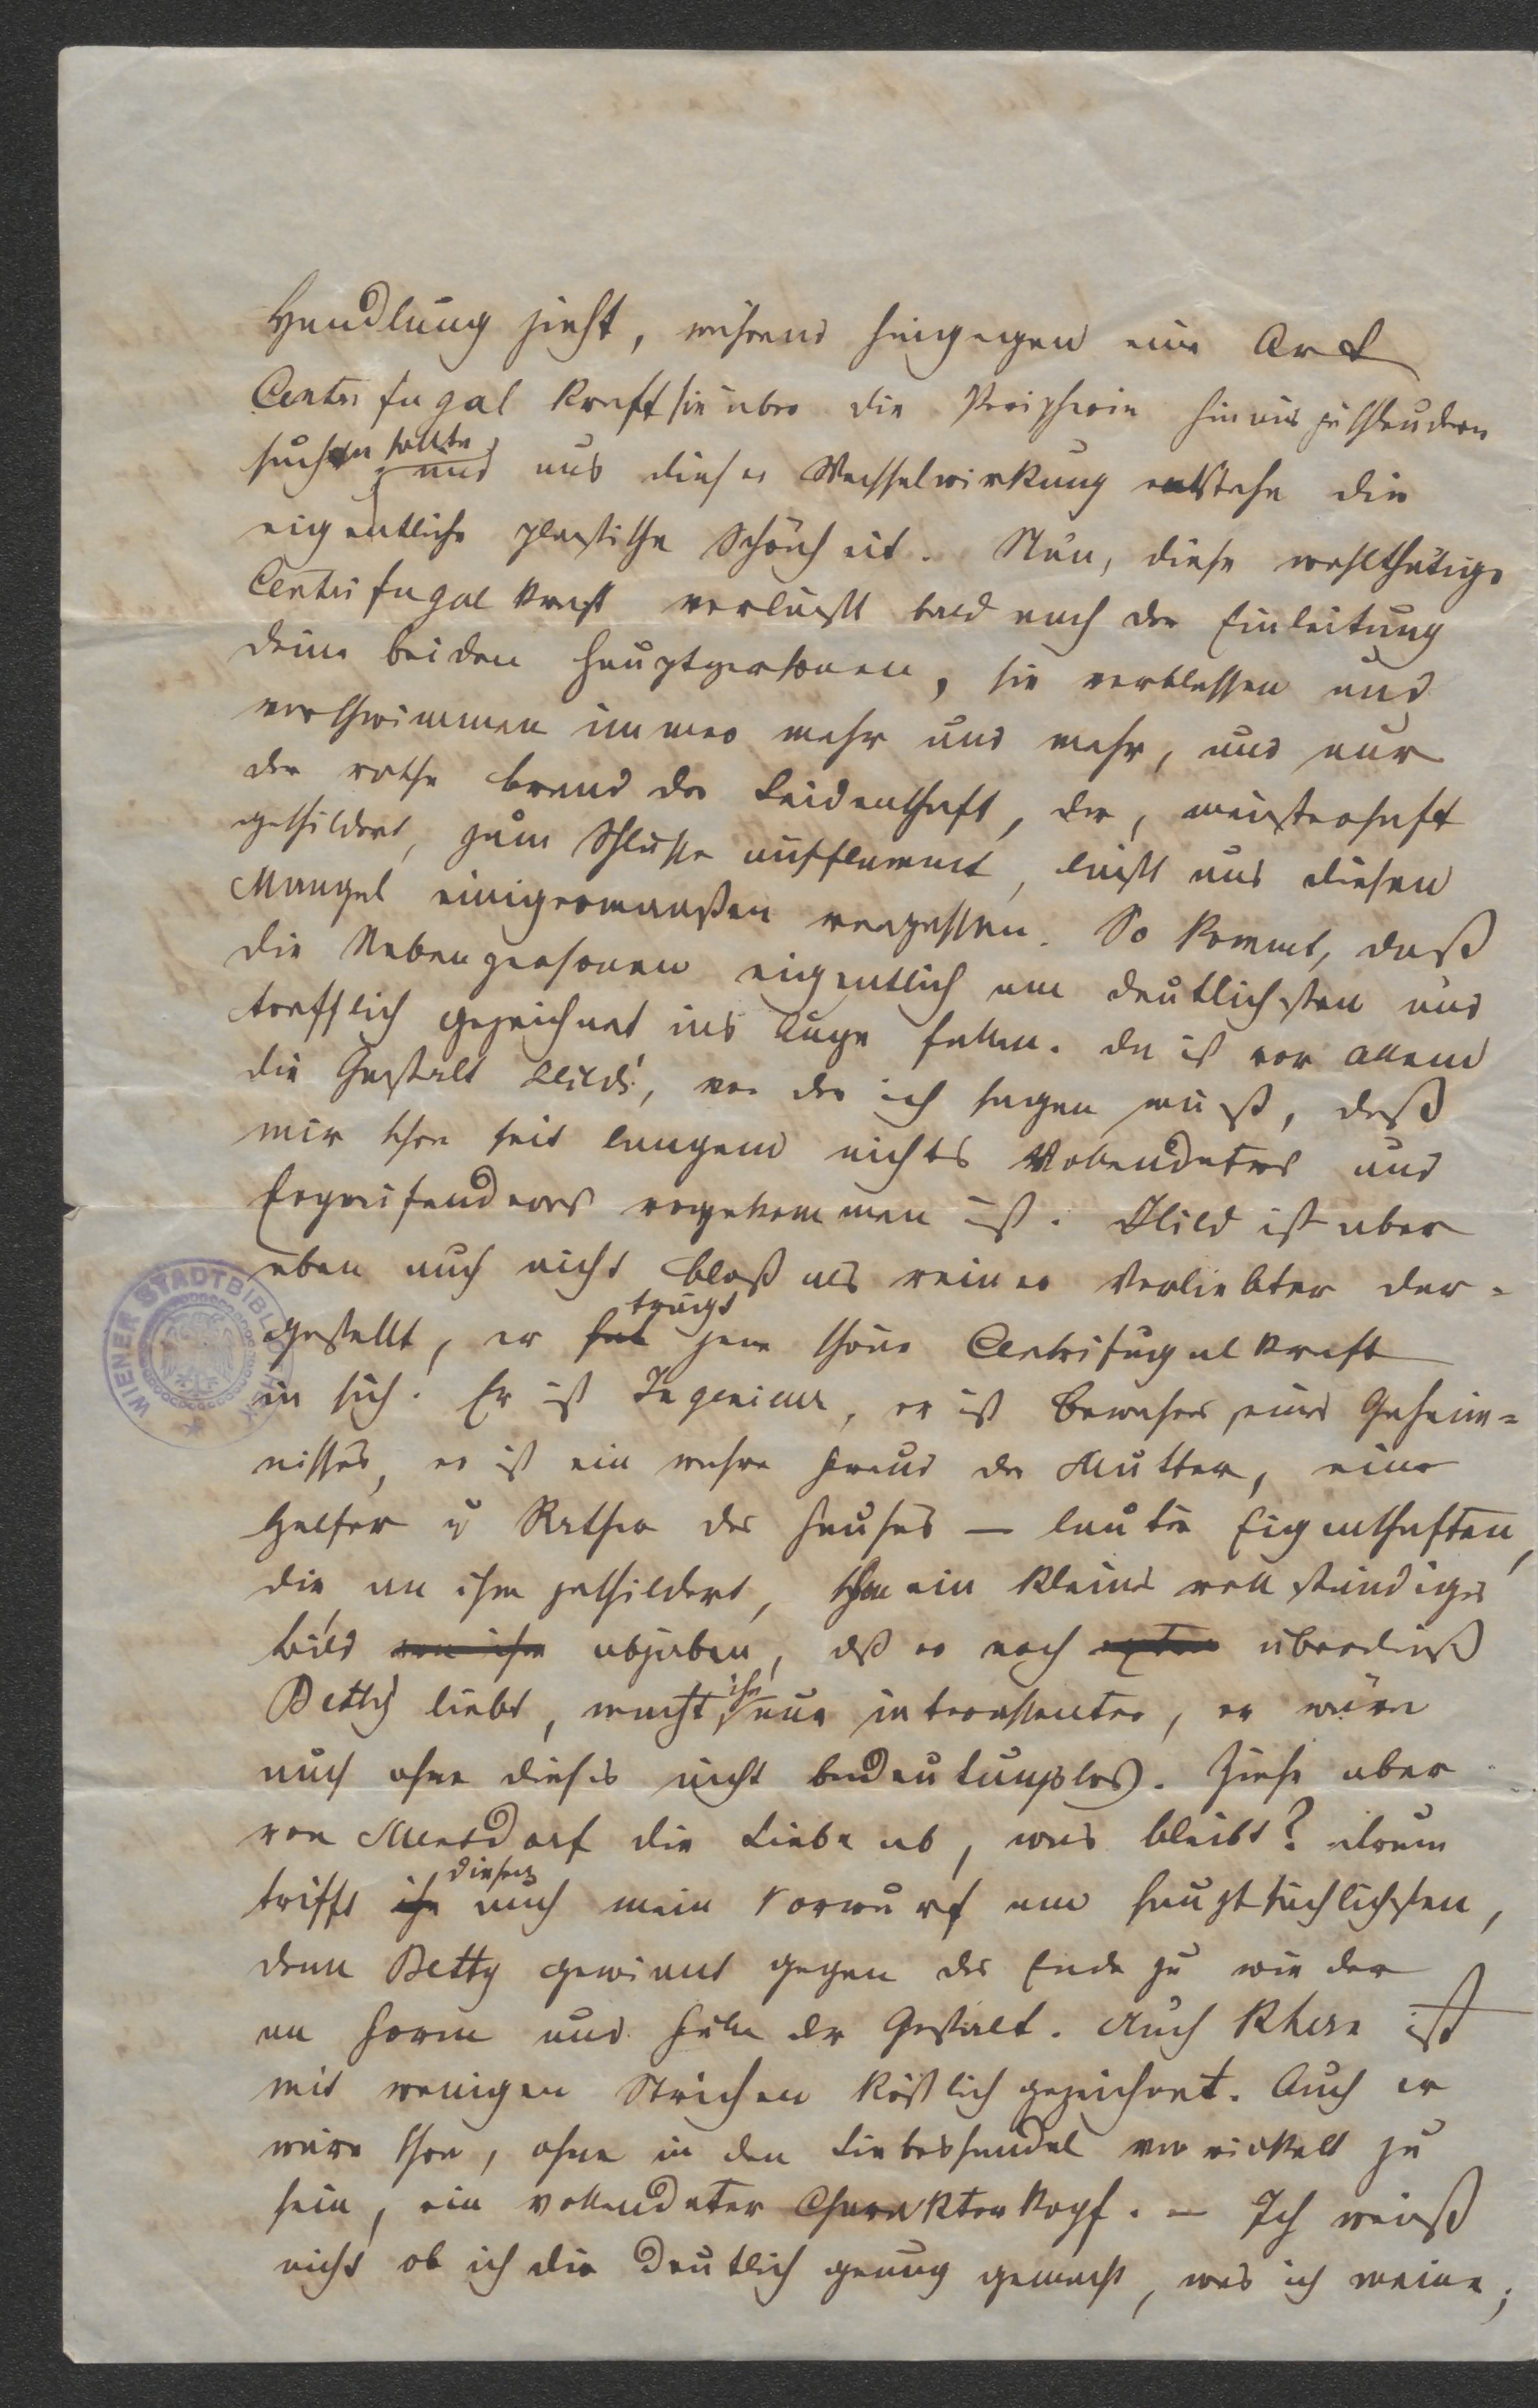 Handlung zieht, während hingegen eine Art
Centrifugal kraft sie über die Peripherie hinaus zu schleudern
suchen sollte und aus dieser Wechselwirkung entstehe die
eigentliche plastische Schönheit. Nun, diese wohlthätige
Centrifugal kraft verläßt bald nach der Einleitung
deine beiden Hauptpersonen, sie verblassen und
verschwimmen immer mehr und mehr, und nur
der rothe Brand der Leidenschaft, der, meisterhaft
geschildert, zum Schlusse aufflammt, läßt uns diesen
Mangel einigermaaßen vergessen. So kommt, daß
die Nebenpersonen eigentlich am deutlichsten und
trefflich gezeichnet ins Auge fallen. Da ist vor allem
die Gestalt , von der ich sagen muß, daß
mir schon seit langem nichts Vollendeteres und
Ergreifenderes vorgekommen ist. ist aber
eben auch nicht bloß als reiner Verliebter dar-
gestellt, er hat trägt jene schöne Centrifugal kraft
in sich. Er ist Ingenieur, er ist Bewahrer eines Geheim=
nisses, er ist ein wahrer Freund der Mutter, ein
Helfer u Rather des Hauses — lauter Eigenschaften,
die an ihm geschildert, schon ein kleines vollständiges
Bild von ihm abgeben, daß er noch überdieß
Betty liebt, macht ihn nur interessanter, er wäre
auch ohne dieses nicht bedeutungslos. Ziehe aber
von Mensdorf die Liebe ab, was bleibt? Darum
trifft ihn diesen auch mein Vorwurf am hauptsächlichsten,
denn Betty gewinnt gegen das Ende zu wieder
an Form und Fülle der Gestalt. Auch ist
mit wenigen Strichen köstlich gezeichnet. Auch er
wäre schon, ohne in den Liebeshandel verwickelt zu
sein, ein vollendeter Charakterkopf. — Ich weiß
nicht ob ich dir deutlich genug gemacht, was ich meine;
WIENER STADTBIBLIOTHEK